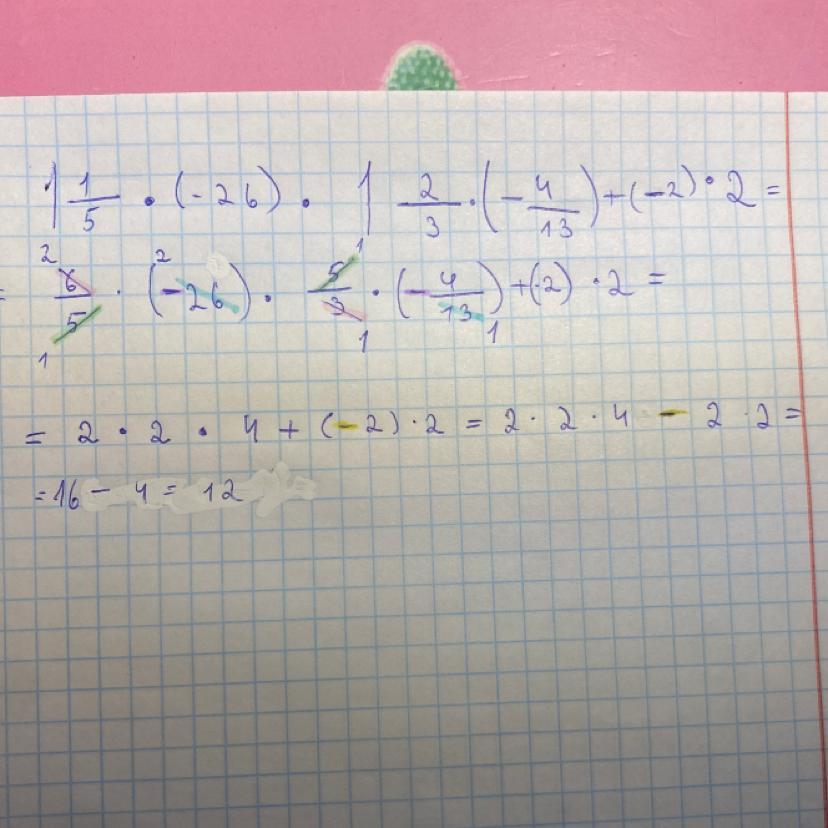 1 1/5 · (-26) · 1 2/3 · (- 4/13) + (-2) · 2 =
= 6/5 · (-26) · 5/3 · (- 4/13) + (-2) · 2 =
= 2 · 2 · 4 + (-2) · 2 = 2 · 2 · 4 - 2 · 2 =
= 16 - 4 = 12